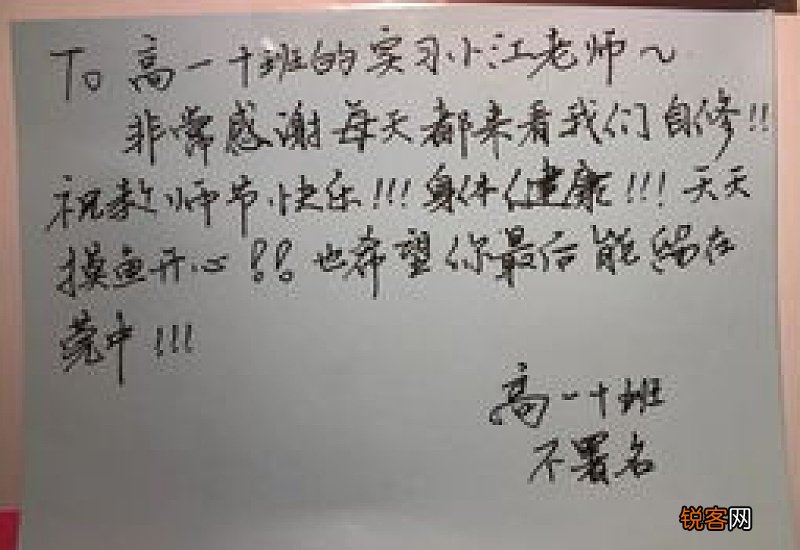 To 高一十班的实习小江老师~
非常感谢每天都来看我们自修!!
祝教师节快乐!!!身体健康!!!天天
摸鱼开心!!也希望你最后能留在
莞中!!!
高一十班
不署名
锐客网